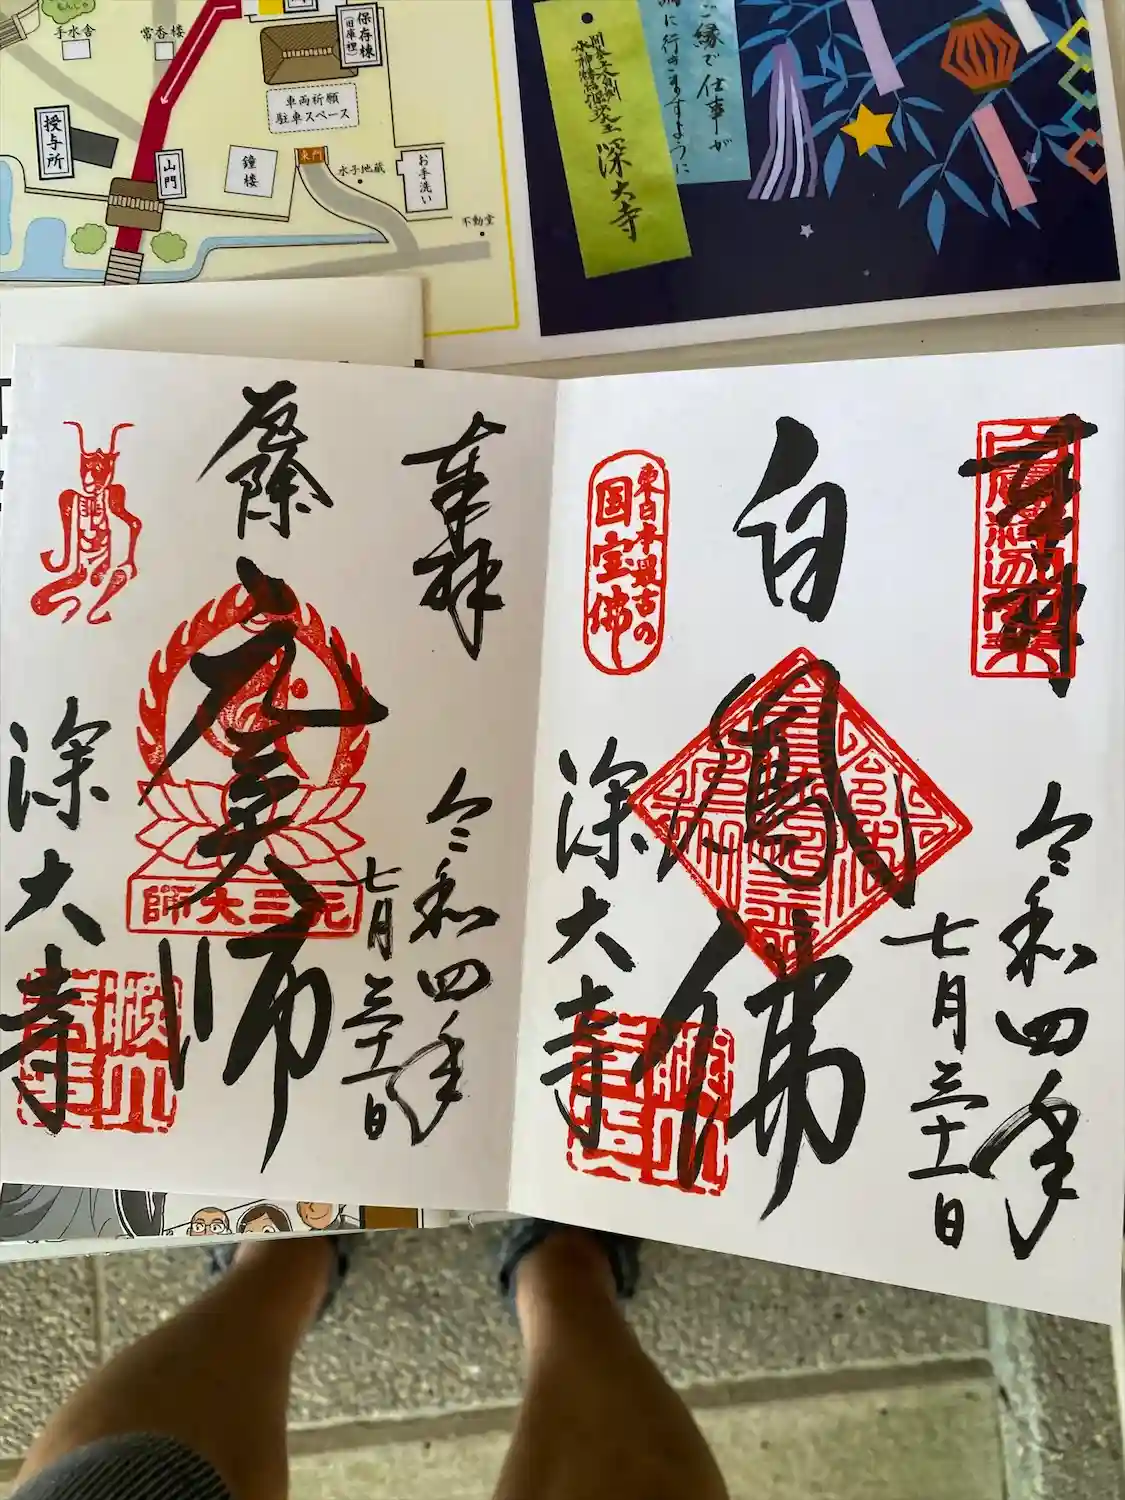 手水舎
常香楼
保存棟
(旧庫裡)
車両祈願
駐車スペース
授与所
山門
鐘楼
東門
水子地蔵
お手洗い
不動堂
ご縁で仕事が
に行きますように
深大寺
奉拝
令和四年
七月三十一日
白
鳳
佛
東日本最古の
国宝佛
深大寺
奉拝
令和四年
七月三十一日
厄除
元三大師
元三大師
深大寺